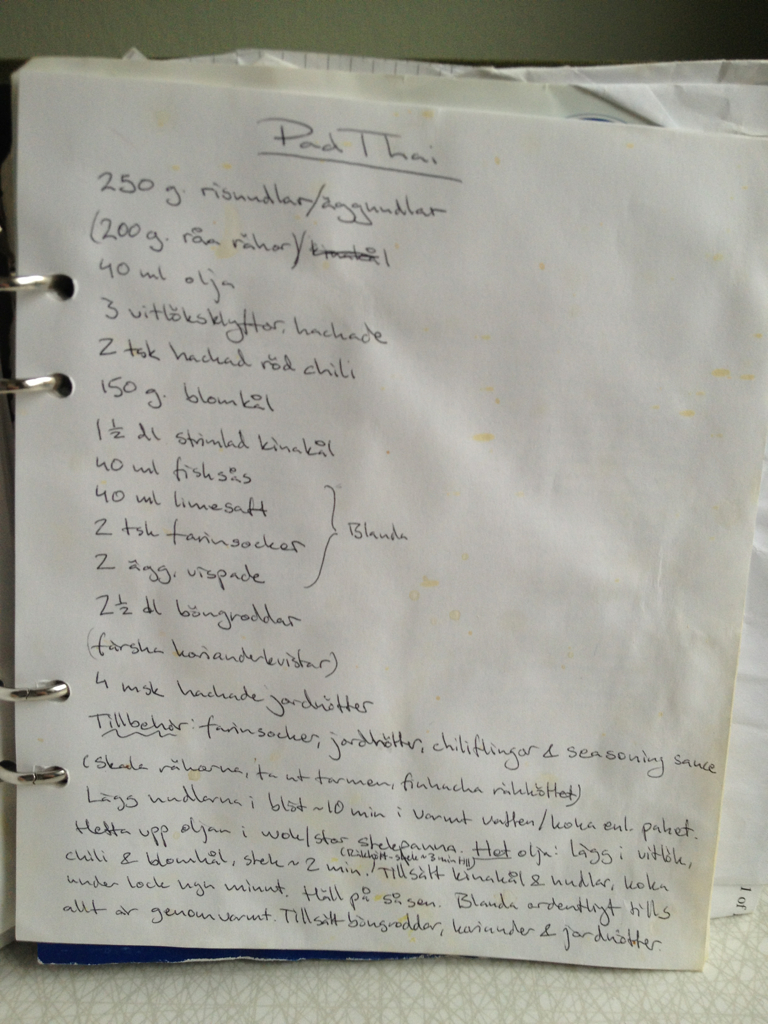 Pad Thai
250 g. risnudlar/äggnudlar
(200 g. råa räkor)/kinakål
40 ml olja
3 vitlöksklyftor, hackade
2 tsk hackad röd chili
150 g. blomkål
1 ½ dl strimlad kinakål
40 ml fisksås
40 ml limesaft
2 tsk farinsocker
2 ägg, vispade
Blanda
2 ½ dl böngroddar
(färska korianderkvistar)
4 msk hackade jordnötter
Tillbehör: farinsocker, jordnötter, chiliflingor & seasoning sauce
(Skala räkorna, ta ut tarmen, finhacka räkköttet)
Lägg nudlarna i blöt ~10 min i varmt vatten/koka enl. paket.
Hetta upp oljan i wok/stor stekpanna. Het olja: lägg i vitlök,
chili & blomkål, stek ~ 2 min. (Räkkött - stek ~ 3 min till) / Tillsätt kinakål & nudlar, koka
under lock ngn minut. Häll på såsen. Blanda ordentligt tills
allt är genomvarmt. Tillsätt böngroddar, koriander & jordnötter.